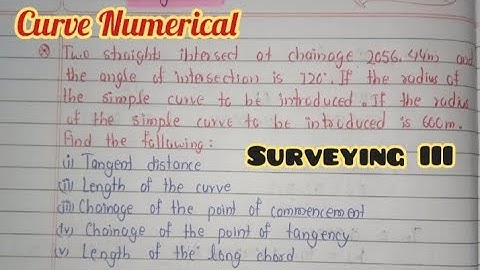 Curve Numerical
Two straights intersect at chainage 2056.44m and
the angle of intersection is 120°. If the radius of
the simple curve to be introduced. If the radius
of the simple curve to be introduced is 600m.
Find the following:
(i) Tangent distance
SURVEYING III
(ii) Length of the curve
(iii) Chainage of the point of commencement
(iv) Chainage of the point of tangency
(v) Length of the long chord